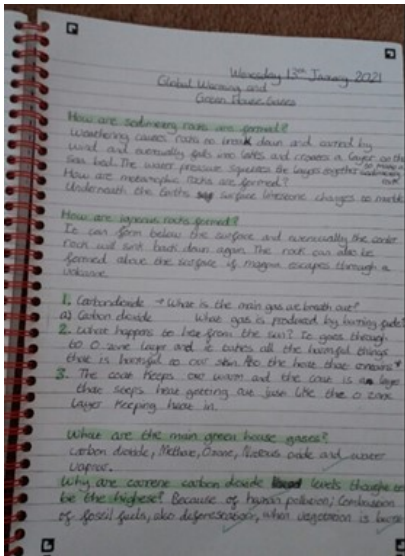 Wednesday 13th January 2021
Global Warming and
Green House Gases
How are sedimentry rocks are formed?
Weathering causes rocks to break down and carried by
wind and eventually gets into lakes and creates a layer on the
Sea bed. The water pressure squeezes the layers together to make a sedimentry rock
How are metamorphic rocks are formed?
Underneath the Earths surface limestone changes to marble
How are igneous rocks formed?
It can form below the surface and eventually the cooler
rock will sink back down again. The rock can also be
formed above the surface if magma escapes through a
volcano.
1. Carbondioxide → What is the main gas we breath out?
a) Carbon dioxide What gas is produced by burning fuels?
2. What happens to heat from the sun? It goes through
to O zone layer and it takes all the harmful things
that is harmful to our skin the heat that remains
3. The coat keeps one warm and the coat is a layer
that stops heat getting out just like the O zone
layer keeping heat in.
What are the main green house gases?
Carbon dioxide, Methane, Ozone, Nitrous oxide and water
vapour.
Why are current carbon dioxide levels thought to
be the highest? Because of human pollution; Combustion
of fossil fuels, also deforestation, when vegetation is burnt